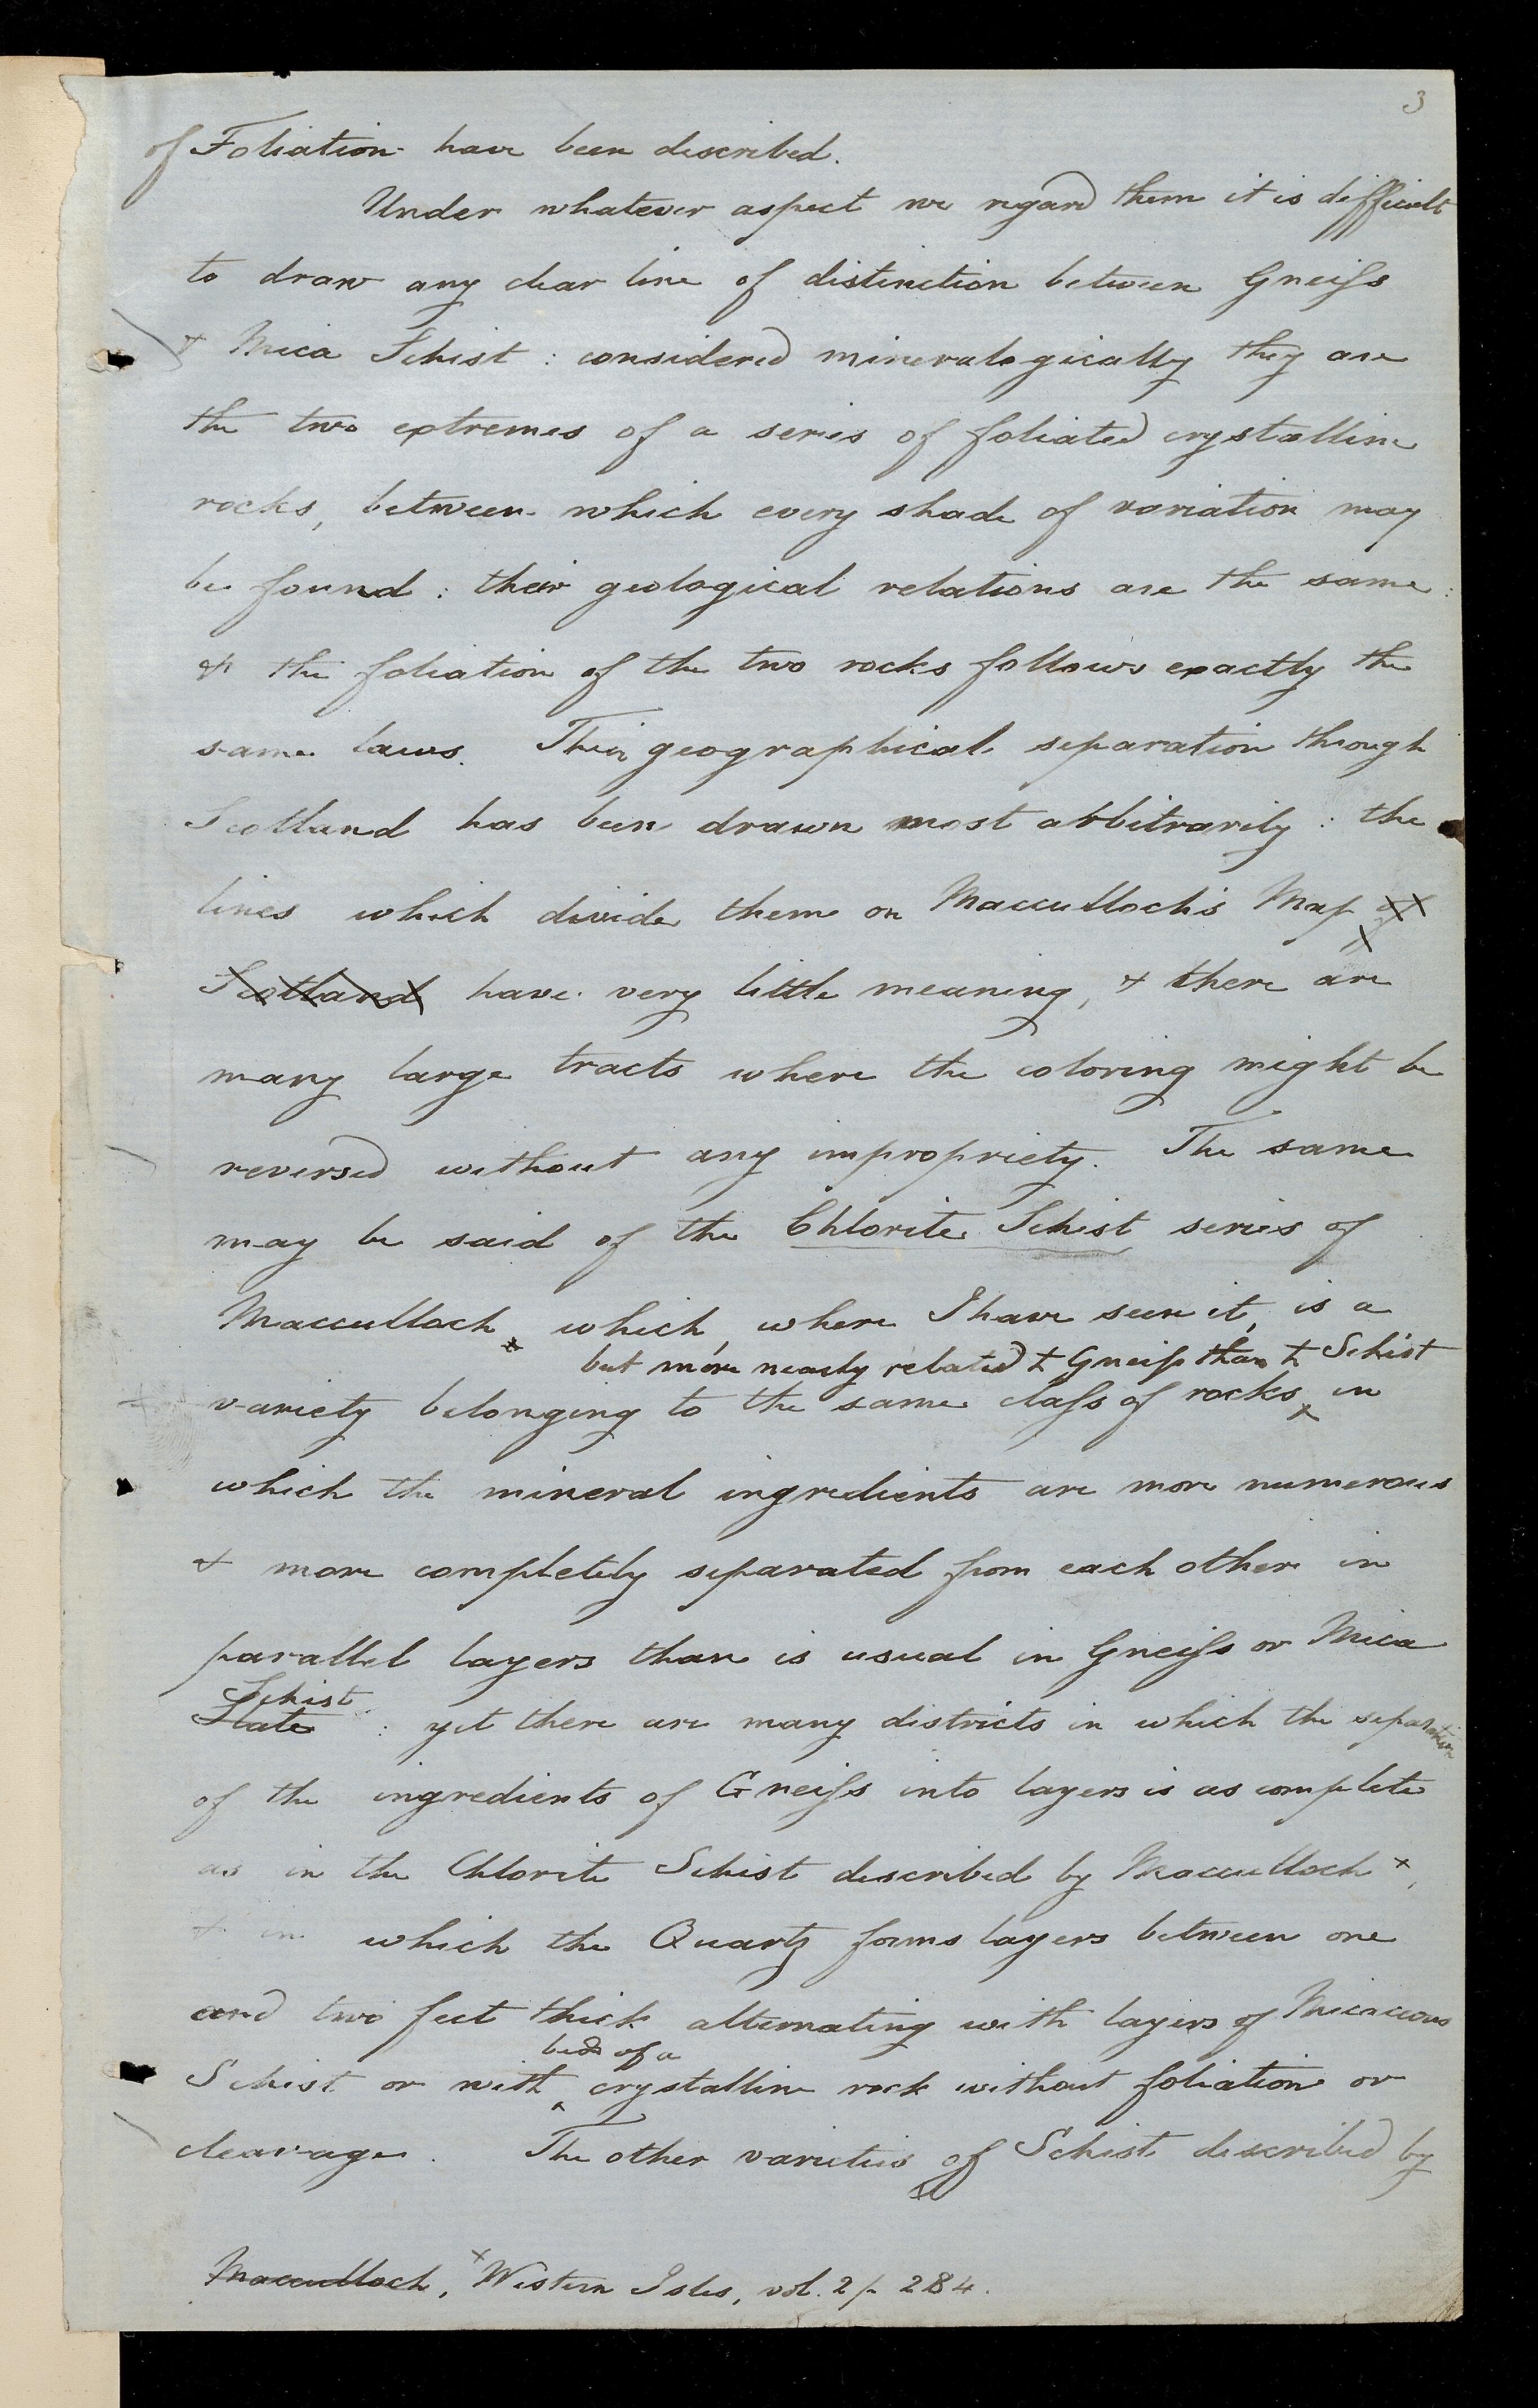 3
of Foliation have been described.
Under whatever aspect we regard them it is difficult
to draw any clear line of distinction between Gneiſs
& Mica Schist : considered mineralogically they are
the two extremes of a series of foliated crystalline
rocks, between which every shade of variation may
be found : their geological relations are the same :
& the foliation of the two rocks follows exactly the
same laws. Their geographical separation through
Scotland has been drawn most arbitrarily : the
lines which divide them on Maccullochs Map of
Scotland have very little meaning, & there are
many large tracts where the coloring might be
reversed without any impropriety. The same
may be said of the Chlorite Schist series of
Macculloch, which, where I have seen it, is a
but more nearly related to Gneiſs than to Schist
variety belonging to the same claſs of rocks, in
which the mineral ingredients are more numerous
& more completely separated from each other in
parallel layers than is usual in Gneiſs or Mica
Schist
Slate : yet there are many districts in which the separation
of the ingredients of Gneiſs into layers is as complete
as in the Chlorite Schist described by Macculloch x,
& in which the Quartz forms layers between one
and two feet thick alternating with layers of Micaceous
beds of a
Schist or with crystalline rock without foliation or
cleavage. The other varieties of Schist described by
Macculloch, x Western Isles, vol. 2 p 284.